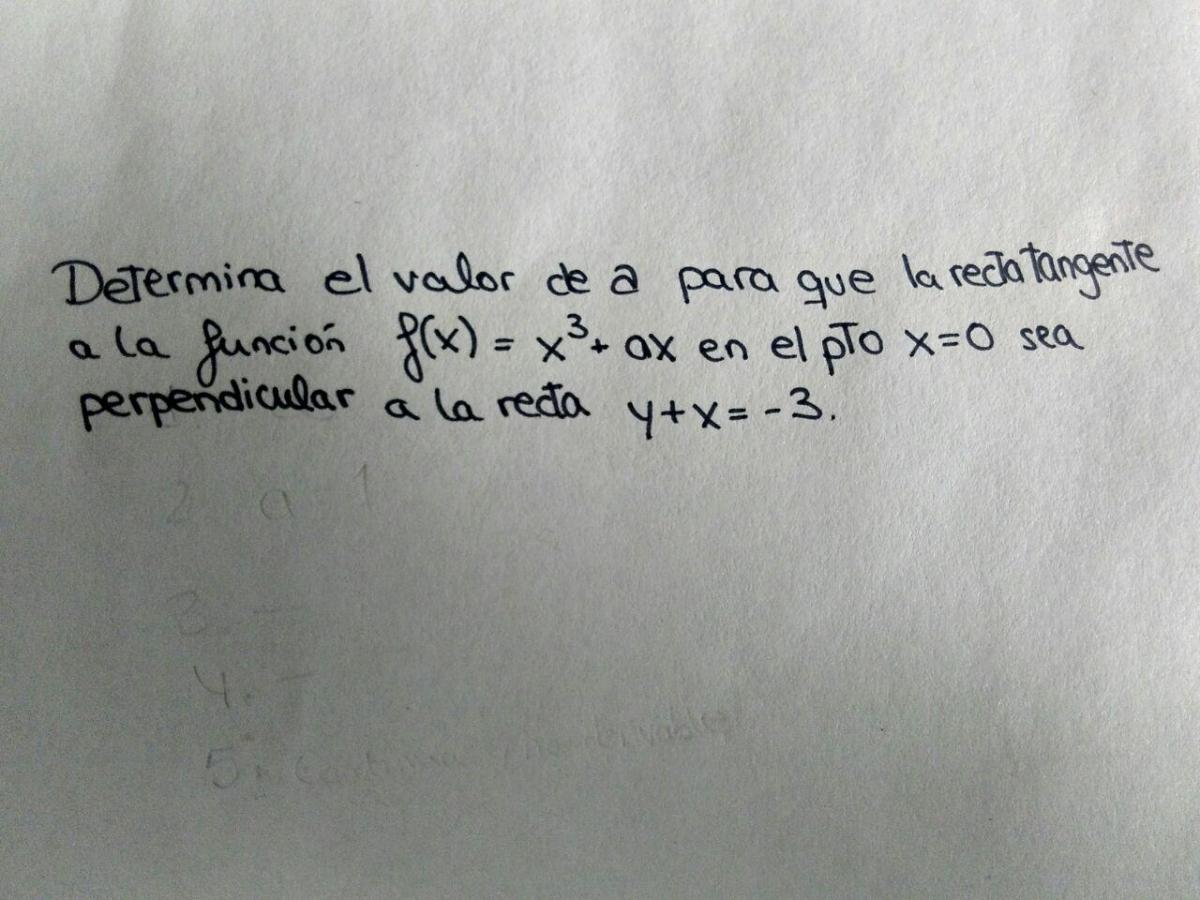 Determina el valor de a para que la recta tangente
a la función f(x) = x³ + ax en el pto x=0 sea
perpendicular a la recta y+x=-3.
2 a 1
3. -
4. -
5.